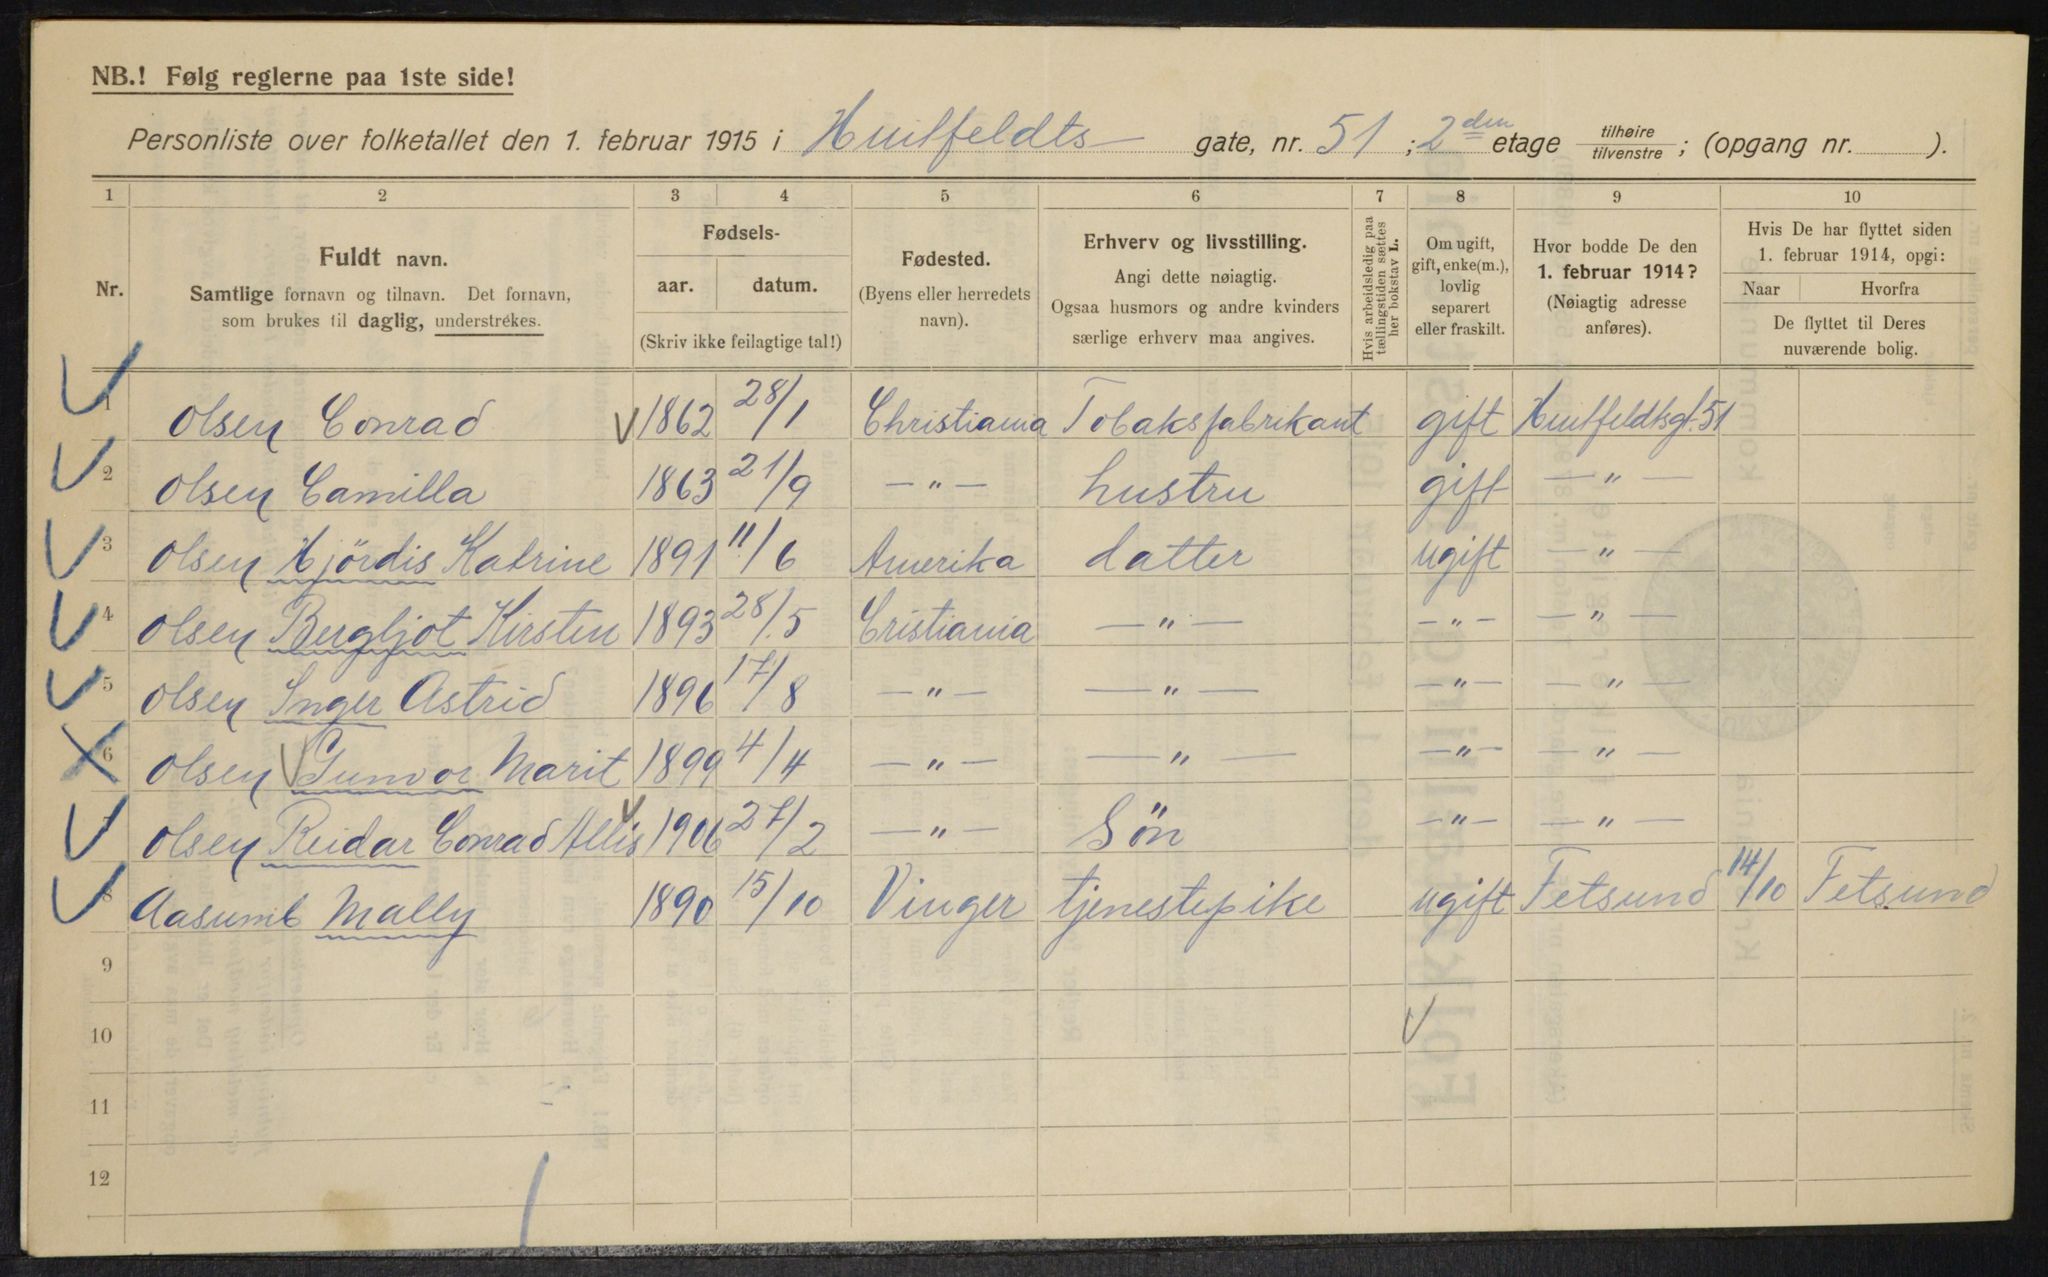 NB.! Følg reglerne paa 1ste side!
Personliste over folketallet den 1. februar 1915 i Huitfeldts gate, nr. 51 ; 2den etage tilhøire/tilvenstre ; (opgang nr. ).
1 2 3 4 5 6 7 8 9 10
Nr.
Fuldt navn.
Samtlige fornavn og tilnavn. Det fornavn,
som brukes til daglig, understrekes.
Fødsels-
aar. datum.
(Skriv ikke feilagtige tal!)
Fødested.
(Byens eller herredets
navn).
Erhverv og livsstilling.
Angi dette nøiagtig.
Ogsaa husmors og andre kvinders
særlige erhverv maa angives.
Hvis arbeidsledig paa
tællingstiden sættes
her bokstav L.
Om ugift,
gift, enke(m.),
lovlig
separert
eller fraskilt.
Hvor bodde De den
1. februar 1914?
(Nøiagtig adresse
anføres).
Hvis De har flyttet siden
1. februar 1914, opgi:
Naar Hvorfra
De flyttet til Deres
nuværende bolig.
1 Olsen Conrad 1862 28/1 Christiania Tobaksfabrikant gift Huitfeldtsgt. 51
2 Olsen Camilla 1863 21/9 — " — hustru gift — " —
3 Olsen Hjördis Katrine 1891 11/6 Amerika datter ugift — " —
4 Olsen Bergljot Kirsten 1893 28/5 Cristiania — " — — " — — " —
5 Olsen Inger Astrid 1896 17/8 — " — — " — — " — — " —
6 Olsen Gunvor Marit 1899 4/4 — " — — " — — " — — " —
7 Olsen Reidar Conrad Allis 1906 27/2 — " — Sön — " — — " —
8 Aasumb Mally 1890 15/10 Vinger tjenestepike ugift Fetsund 14/10 Fetsund
9
10
11
12